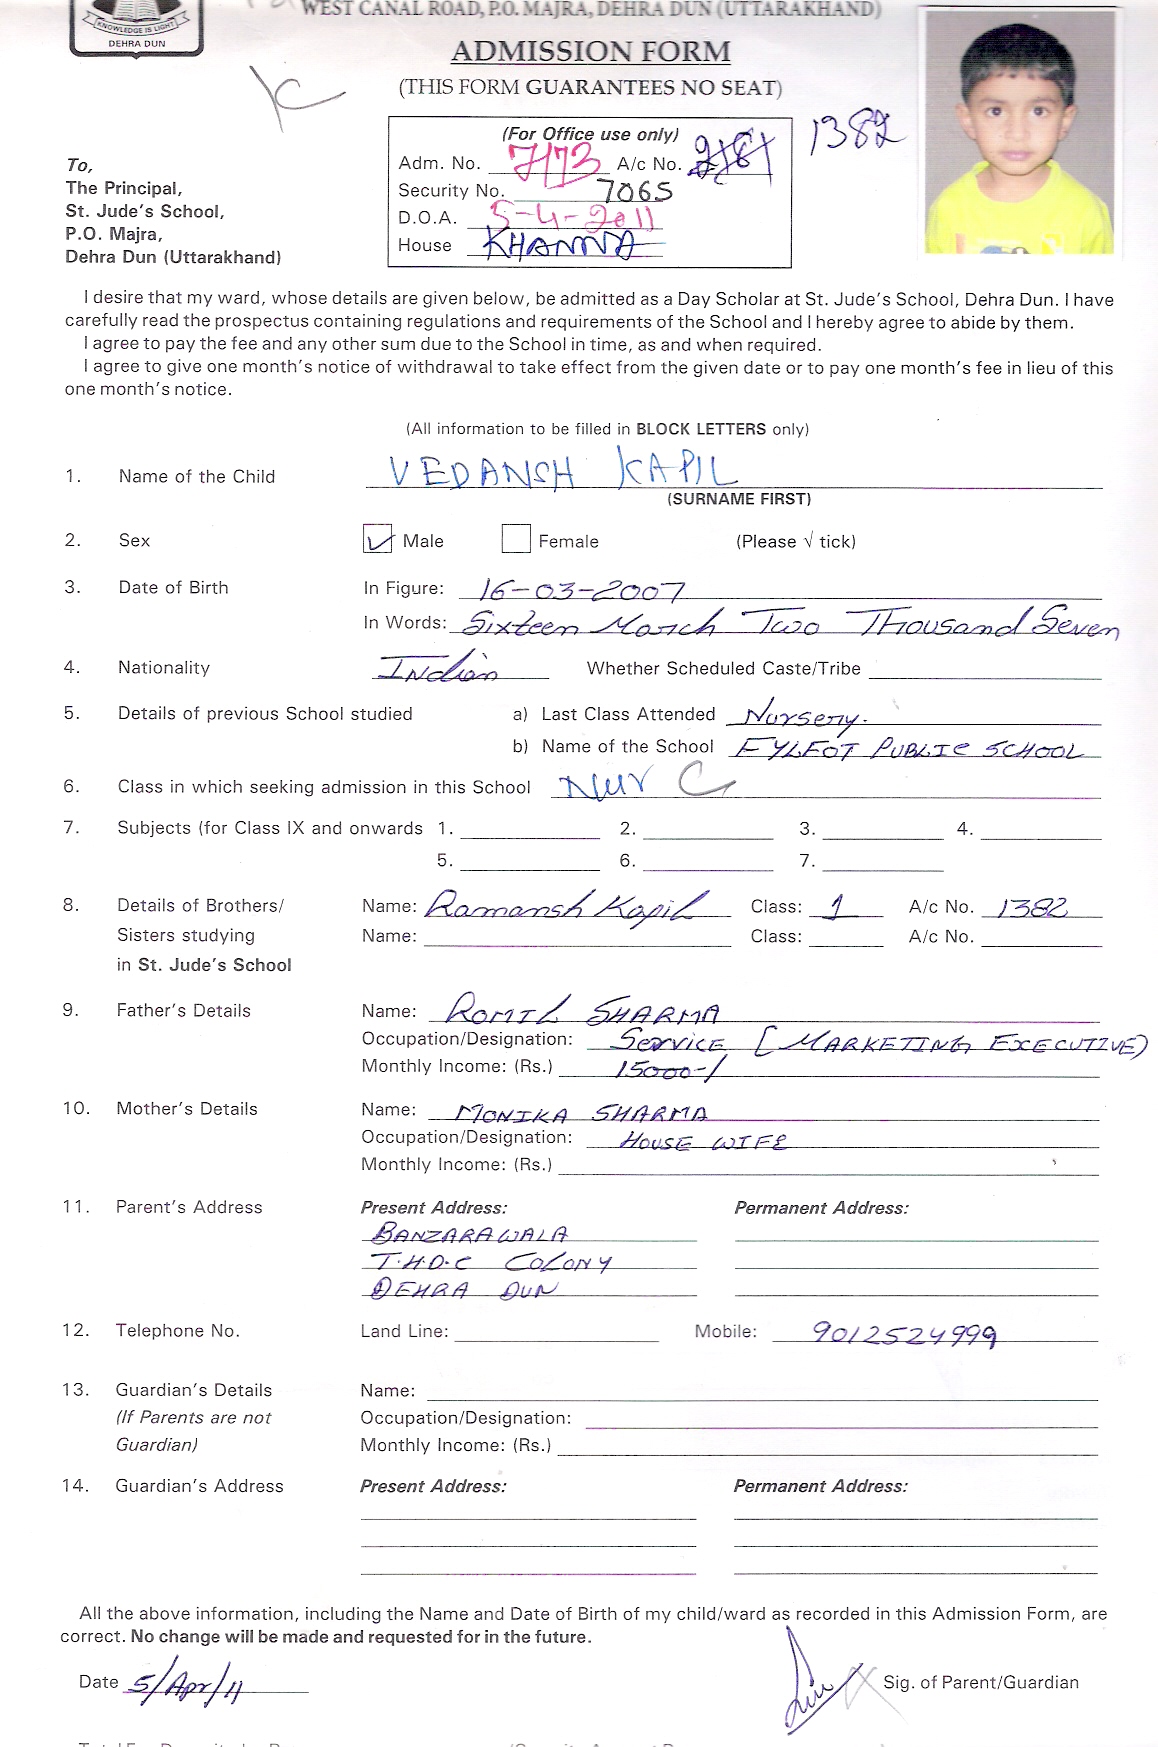 WEST CANAL ROAD, P.O. MAJRA, DEHRA DUN (UTTARAKHAND)
KNOWLEDGE IS LIGHT
DEHRA DUN
ADMISSION FORM
(THIS FORM GUARANTEES NO SEAT)
(For Office use only)
1382
Adm. No. 7173 A/c No.
Security No. 7065
D.O.A. 5-4-2011
House KHANNA
To,
The Principal,
St. Jude's School,
P.O. Majra,
Dehra Dun (Uttarakhand)
I desire that my ward, whose details are given below, be admitted as a Day Scholar at St. Jude's School, Dehra Dun. I have
carefully read the prospectus containing regulations and requirements of the School and I hereby agree to abide by them.
I agree to pay the fee and any other sum due to the School in time, as and when required.
I agree to give one month's notice of withdrawal to take effect from the given date or to pay one month's fee in lieu of this
one month's notice.
(All information to be filled in BLOCK LETTERS only)
1. Name of the Child VEDANSH KAPIL
(SURNAME FIRST)
2. Sex Male Female (Please √ tick)
3. Date of Birth In Figure: 16-03-2007
In Words: Sixteen March Two Thousand Seven
4. Nationality Indian Whether Scheduled Caste/Tribe
5. Details of previous School studied a) Last Class Attended Nursery.
b) Name of the School FYLFOT PUBLIC SCHOOL
6. Class in which seeking admission in this School Nur C
7. Subjects (for Class IX and onwards 1. 2. 3. 4.
5. 6. 7.
8. Details of Brothers/ Name: Ramansh Kapil Class: 1 A/c No. 1382
Sisters studying Name: Class: A/c No.
in St. Jude's School
9. Father's Details Name: ROMIL SHARMA
Occupation/Designation: Service [MARKETING EXECUTIVE)
Monthly Income: (Rs.) 15000-/
10. Mother's Details Name: MONIKA SHARMA
Occupation/Designation: HOUSE WIFE
Monthly Income: (Rs.)
11. Parent's Address Present Address: Permanent Address:
BANZARAWALA
T.H.D.C COLONY
DEHRA DUN
12. Telephone No. Land Line: Mobile: 9012524999
13. Guardian's Details Name:
(If Parents are not Occupation/Designation:
Guardian) Monthly Income: (Rs.)
14. Guardian's Address Present Address: Permanent Address:
All the above information, including the Name and Date of Birth of my child/ward as recorded in this Admission Form, are
correct. No change will be made and requested for in the future.
Date 5/Apr/11 Sig. of Parent/Guardian